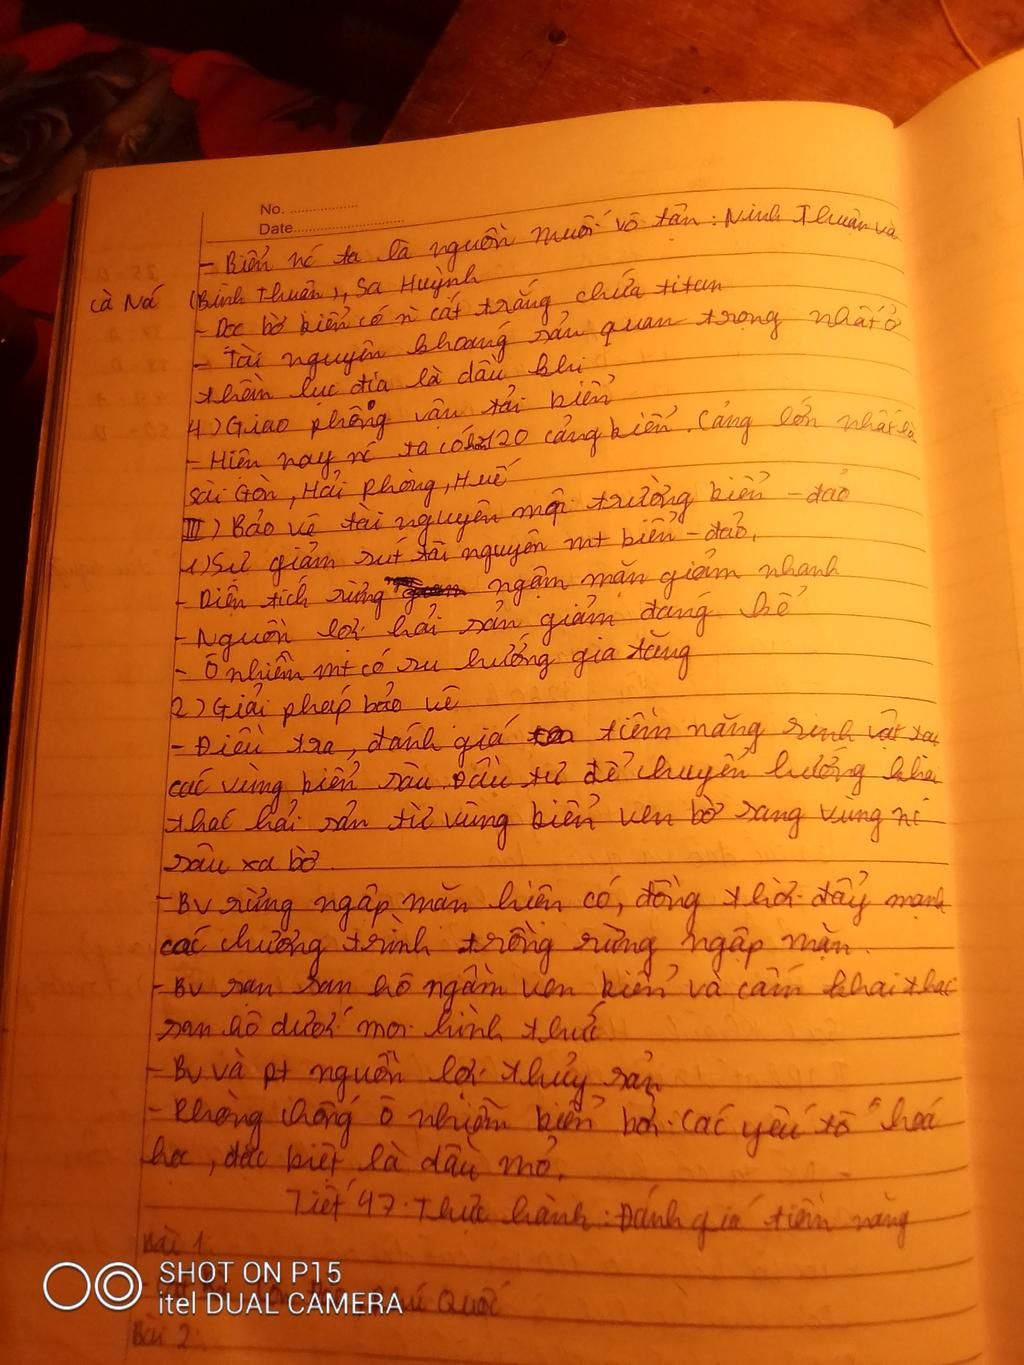 No. ..................
Date..............................
- Biển nc ta là nguồn muối vô tận: Ninh Thuận và
cà Ná (Bình Thuận), Sa Huỳnh
- Dọc bờ biển có n cát trắng chứa titan
- Tài nguyên khoáng sản quan trọng nhất ở
thềm lục địa là dầu khí
4) Giao phông vận tải biển
- Hiện nay nc ta có hơn 120 cảng biển. Cảng lớn nhất là
Sài Gòn, Hải Phòng, Huế
III) Bảo vệ tài nguyên môi trường biển - đảo
1) Sự giảm sút tài nguyên mt biển - đảo.
- Diện tích rừng ngậm mặn giảm nhanh
- Nguồn lợi hải sản giảm đáng kể
- Ô nhiễm mt có xu hướng gia tăng
2) Giải pháp bảo vệ
- Điều tra, đánh giá tiềm năng sinh vật tại
các vùng biển sâu. Đầu tư để chuyển hướng khai
thác hải sản từ vùng biển ven bờ sang vùng nc
sâu xa bờ.
- Bv rừng ngập mặn hiện có, đồng thời đẩy mạnh
các chương trình trồng rừng ngập mặn.
- Bv rạn san hô ngầm ven biển và cấm khai thác
san hô dưới mọi hình thức
- Bv và pt nguồn lợi thủy sản
- Phòng chống ô nhiễm biển bởi các yếu tố hoá
học, đặc biệt là dầu mỏ.
Tiết 47. Thực hành: Đánh giá tiềm năng
Bài 1:
Phú Quốc
Bài 2:
SHOT ON P15
itel DUAL CAMERA